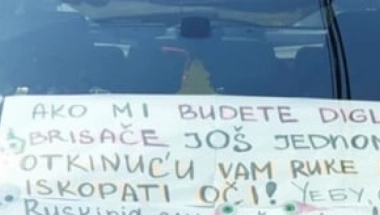 AKO MI BUDETE DIGL
BRISAČE JOŠ JEDNOM
OTKINUĆU VAM RUKE
ISKOPATI OČI!